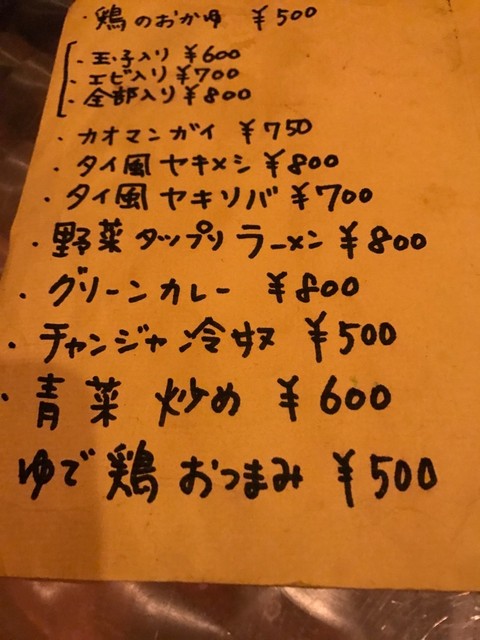 ・鶏のおかゆ ¥500
・玉子入り ¥600
・エビ入り ¥700
・全部入り ¥800
・カオマンガイ ¥750
・タイ風ヤキメシ ¥800
・タイ風ヤキソバ ¥700
・野菜タップリラーメン ¥800
・グリーンカレー ¥800
・チャンジャ冷奴 ¥500
・青菜炒め ¥600
ゆで鶏おつまみ ¥500